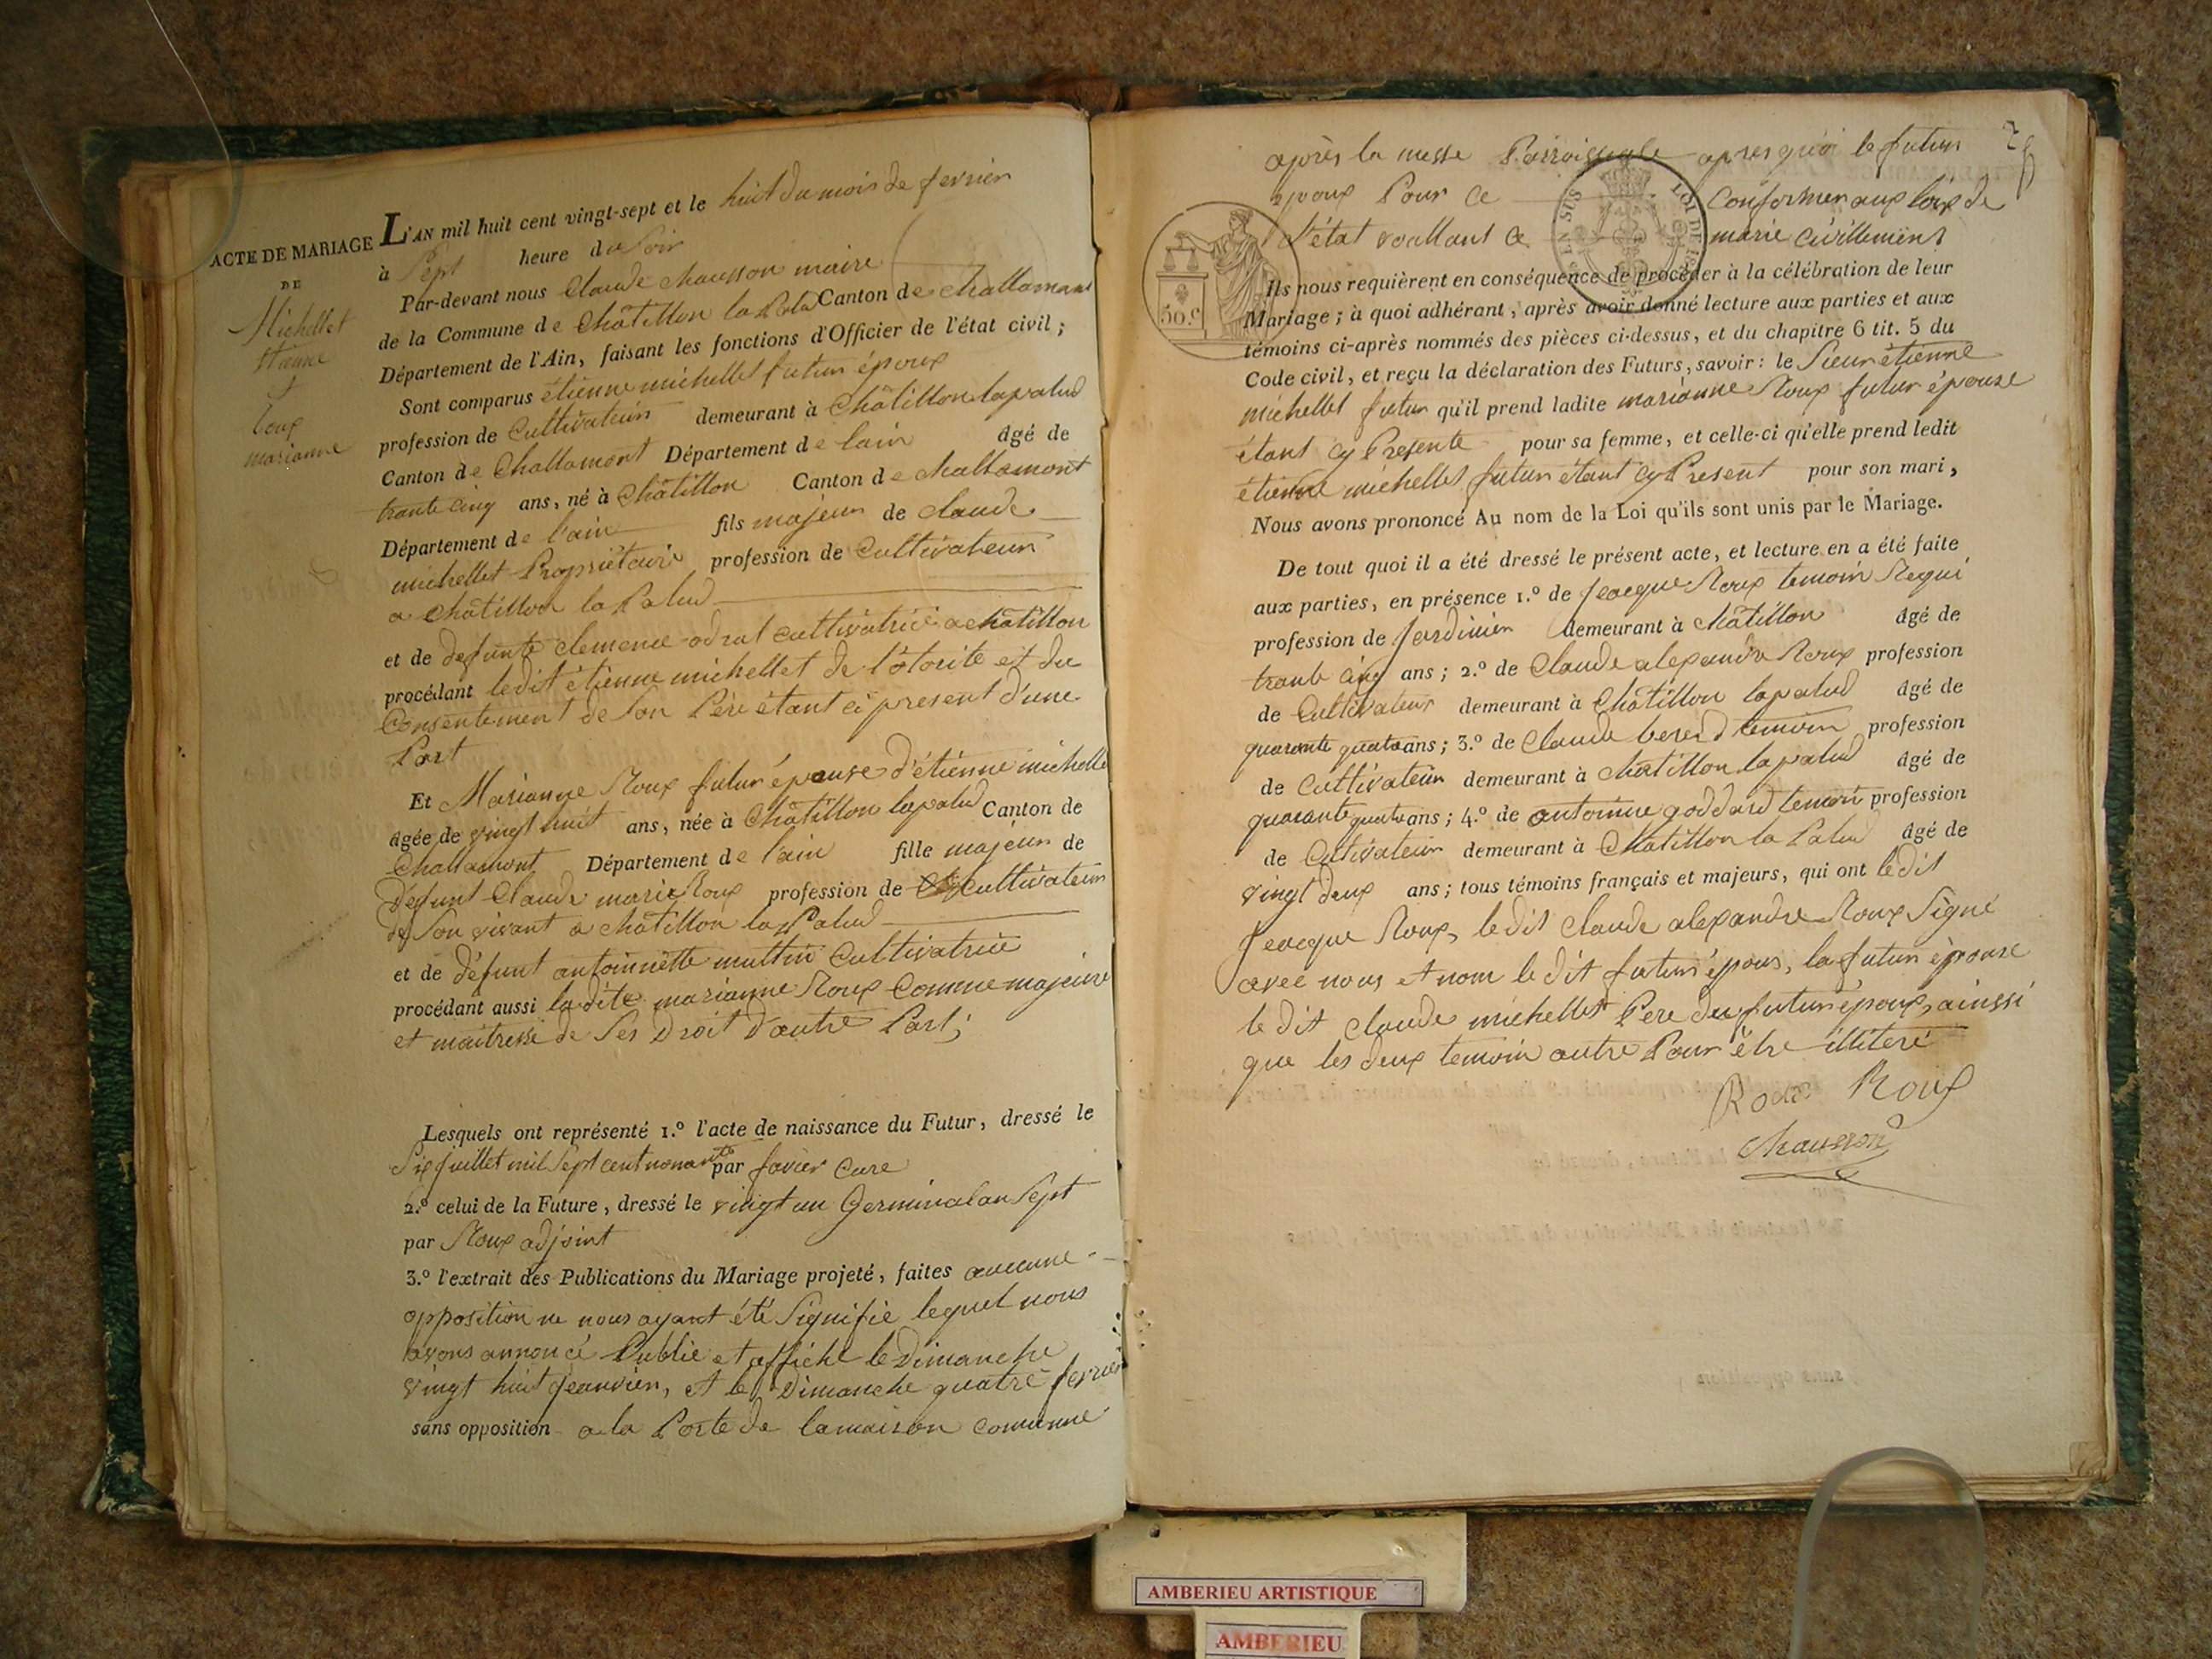 ACTE DE MARIAGE
DE
Michellet
étienne
et
Roux
marianne
L'AN mil huit cent vingt-sept et le huit du mois de fevrier
à Sept heure du Soir
Par-devant nous Claude Chausson maire
de la Commune de Châtillon la Palud Canton de Challamont
Département de l'Ain, faisant les fonctions d'Officier de l'état civil;
Sont comparus étienne michellet futur époux
profession de Cultivateur demeurant à Châtillon lapalud
Canton de Challamont Département de lain âgé de
trante cinq ans, né à Châtillon Canton de challamont
Département de l'ain fils majeur de claude
michellet Propriétaire profession de Cultivateur
a Châtillon la Palud
et de defunte Clemence odrat cultivatrice a châtillon
procédant ledit étienne michellet de l'otorité et du
Consentement de Son Père étant ci present d'une
Part
Et Marianne Roux futur épouse d'étienne michelle
âgée de vingt huit ans, née à Châtillon lapalud Canton de
Challamont Département de l'ain fille majeur de
Défunt Claude marie Roux profession de Cultivateur
de Son vivant a Châtillon la Palud
et de défunt antoinette multin Cultivatrice
procédant aussi la dite marianne Roux Comme majeure
et maitresse de Ses Droit d'autre Part;
Lesquels ont représenté 1.º l'acte de naissance du Futur, dressé le
Six juillet mil Sept cent nonante par favier Cure
2.º celui de la Future, dressé le vingt un Germinal an Sept
par Roux adjoint
3.º l'extrait des Publications du Mariage projeté, faites aucunne
opposition ne nous ayant été Signifié lequel nous
avons annoncé Publié et affiché le Dimanche
vingt huit jeanvier, et le Dimanche quatre fevrier
sans opposition a la Porte de la maison comunne
après la messe Parroissiale apres quoi le futur
époux Pour Ce Conformer aux loix de
l'état voullant Ce marié civillement
TIMBRE EN SUS
LOI DE 1816
50.c
Ils nous requièrent en conséquence de procéder à la célébration de leur
Mariage; à quoi adhérant, après avoir donné lecture aux parties et aux
témoins ci-après nommés des pièces ci-dessus, et du chapitre 6 tit. 5 du
Code civil, et reçu la déclaration des Futurs, savoir: le Sieur étienne
michellet futur qu'il prend ladite marianne Roux futur épouse
étant cy Presente pour sa femme, et celle-ci qu'elle prend ledit
étienne michellet futur étant cy Present pour son mari,
Nous avons prononcé Au nom de la Loi qu'ils sont unis par le Mariage.
De tout quoi il a été dressé le présent acte, et lecture en a été faite
aux parties, en présence 1.º de Jeacque Roux temoin Requi
profession de Jardinier demeurant à châtillon âgé de
trante cinq ans; 2.º de Claude alexandre Roux profession
de Cultivateur demeurant à Châtillon lapalud âgé de
quarante quatre ans; 3.º de Claude bererd temoin profession
de Cultivateur demeurant à Châtillon lapalud âgé de
quarante quatre ans; 4.º de antoinne goddard temoin profession
de Cultivateur demeurant à Châtillon la Palud âgé de
vingt deux ans; tous témoins français et majeurs, qui ont ledit
Jeacque Roux, le dit Claude alexandre Roux Signé
avec nous et nom le dit futur époux, la futur épouse
le dit Claude michellet Père du futur époux, ainssi
que les deux temoin autre Pour être illiteré
Roux Roux
Chausson
AMBERIEU ARTISTIQUE
AMBERIEU